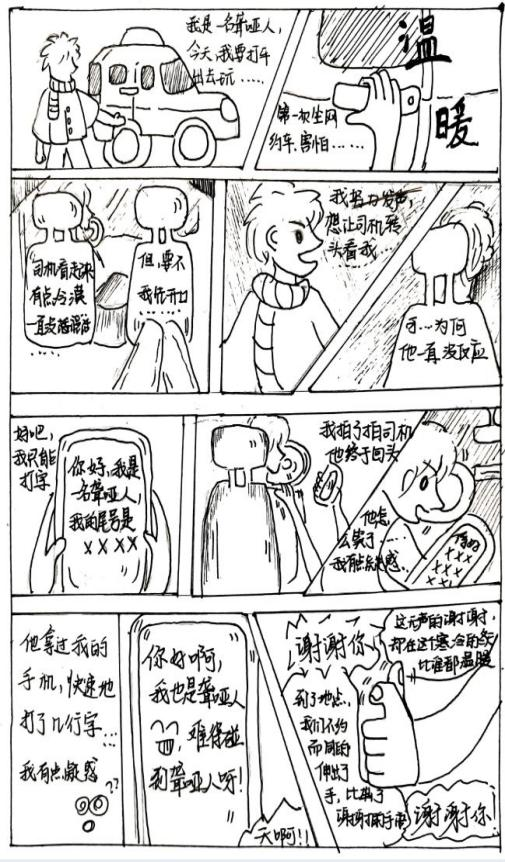 温
暖
我是一名聋哑人,
今天,我要打车
出去玩……
第一次坐网
约车,害怕……
司机看起来
有点冷漠
一直没搭理我
……
但要不
我先开口
……
我努力发声,
想让司机转
头看我…
可…为何
他一直没反应
好吧,
我只能
打字
你好,我是
一名聋哑人,
我的尾号是
××××
我拍了拍司机
他终于回头
他怎
么笑了……
我有点疑惑…
×××
×××
他拿过我的
手机,快速地
打了几行字…
我有点疑惑
??
你好啊,
我也是聋哑人
,难得碰
到聋哑人呀!
天啊!!
谢谢你!
到了地点,
我们不约
而同的
伸出了
手,比划了
这无声的谢谢,
却在这个寒冷的冬天
比谁都温暖
谢谢你!